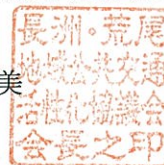 美
長洲・荒尾
地域公共交通
活性化協議会
会長之印